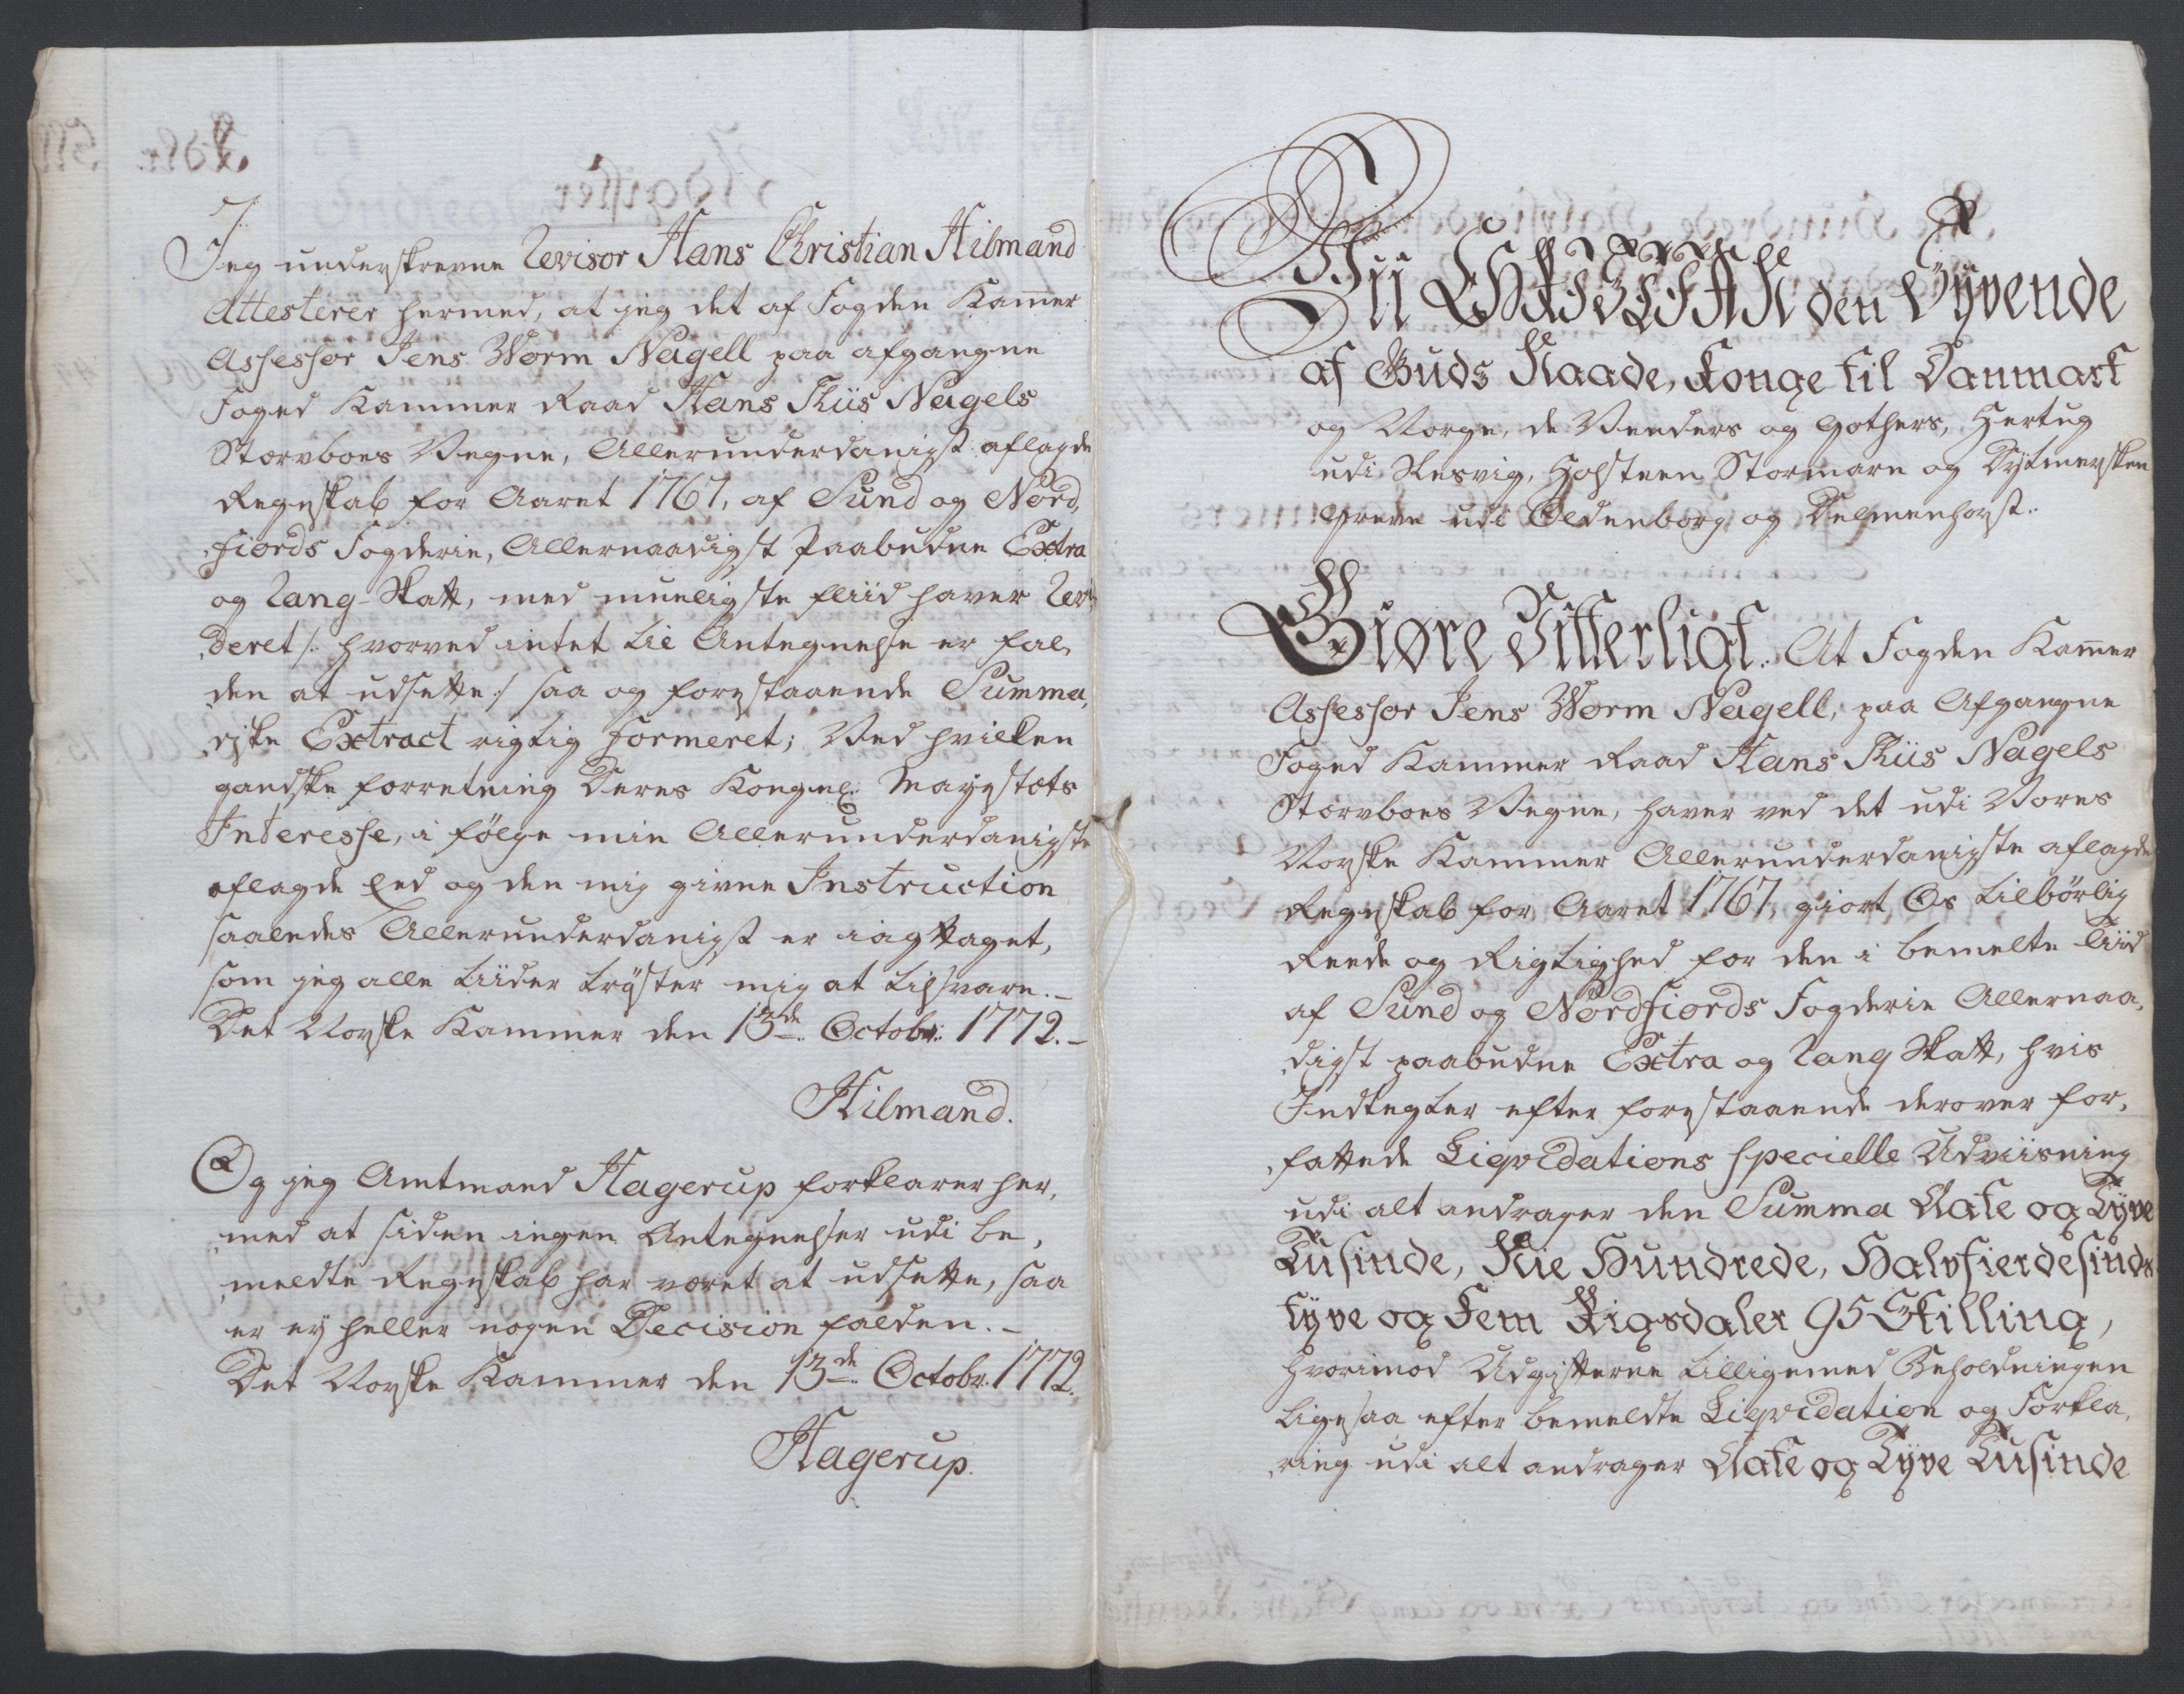 Jeg underskrevne Revisor Hans Christian Hilmand
Attesterer hermed, at jeg det af Fogden Kammer
Assessor Jens Worm Nagell paa afgangne
Foged Kammer Raad Hans Thiis Nagels
Stervboes Vegne, Allerunderdanigst aflagde
Regnskab for Aaret 1767, af Sund og Nord,
fiords Fogderie, Allernaadigst Paabudne Extra
og Rang-Skatt, med mueligste fliid haver Revi,
deret /: hvorved intet lie Antegnelse er fal,
den at udsette :/ saa og forestaaende Summa,
riske Extract rigtig formeret; Ved hvilken
gandske forretning Deres Kongel: Mayestets
Interesse, i følge min Allerunderdanigste
aflagde Eed og den mig givne Instruction
saaledes Allerunderdanigst er iagttaget,
som jeg alle tiider trøster mig at tilsvare.-
Det Norske Kammer den 13de Octobr: 1772.-
Hilmand.
Og jeg Amtmand Hagerup forklarer her,
med at siden ingen Antegnelser udi be,
meldte Regnskab har været at udsette, saa
er ey heller nogen Decision falden.-
Det Norske Kammer den 13de Octobr. 1772.
Hagerup.
Vii CHRISTIAN den Syvende
af Guds Naade, Konge til Danmark
og Norge, de Venders og Gothers, Hertug
udi Slesvig, Holsteen Stormarn og Dytmersken
Greve udi Oldenborg og Delmenhorst.
Giøre Vitterligt: At Fogden Kammer
Assessor Jens Worm Nagell, paa Afgangne
Foged Kammer Raad Hans Thiis Nagels
Stervboes Vegne, haver ved det udi Vores
Norske Kammer Allerunderdanigste aflagde
Regnskab for Aaret 1767, giort Os tilbørlig
Reede og Rigtighed for den i bemelte Tiid
af Sund og Nordfiords Fogderie Allernaa,
digst paabudne Extra og Rang Skatt, hvis
Indtegter efter forestaaende derover for,
fattede Liqvidations specielle Udviisning
udi alt andrager den Summa Aatte og Tyve
Tusinde, Nie Hundrede, Halvfierdesinds
tyve og Fem Rigsdaler 95 Skilling,
hvorimod Udgifterne tilligemed Beholdningen
ligesaa efter bemeldte Liqvidation og Forkla,
ring udi alt andrager Aatte og Tyve Tusinde